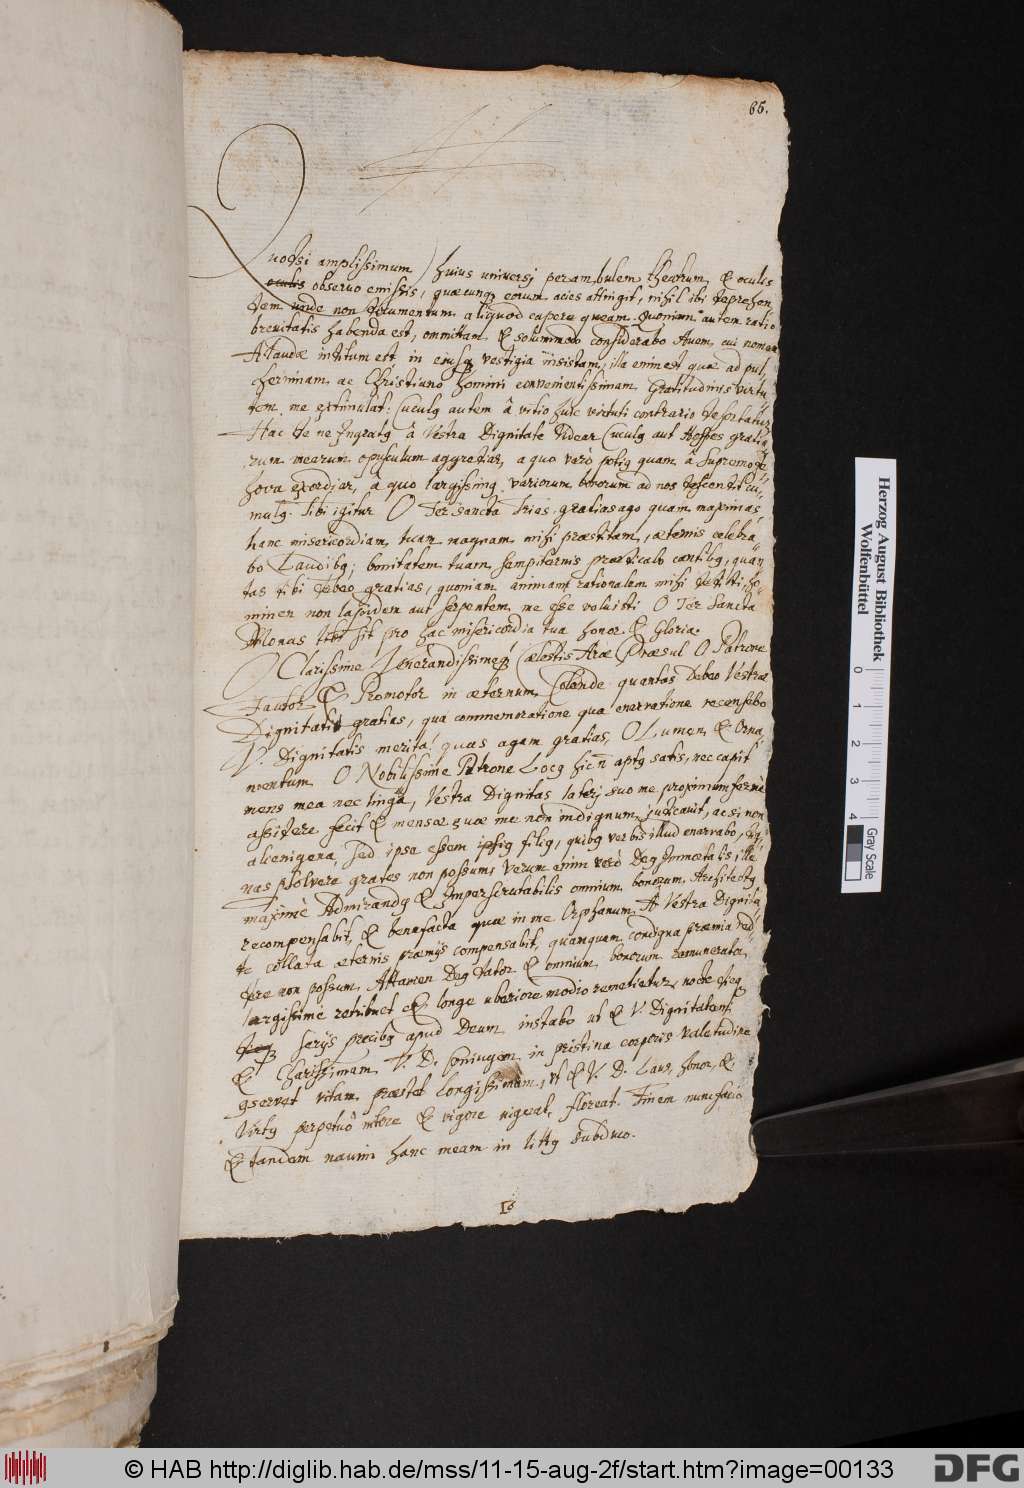 65.
Quodsi amplissimum huius universj perambulem theatrum, & oculis
oculis observo emissis, quæcunq; eorum acies attingit, nihil ibi deprehen
dem unde non documentum aliquod capere queam. Quoniam autem ratio
brevitatis habenda est, omittam, & solummodo considerabo Avem, cui nomen
Alaudæ inditum est in ejusq; vestigia insistam, illa enim est quæ ad pul,
cherrimam ac Christiano homini convenientissimam Gratitudinis virtu
tem me extimulat: Cuculg autem â vitio huic virtuti contrario dehortatur
Hac de ne Ingratg â Vestra Dignitate videar Cuculg aut Hospes gratia
rum mearum opusculum aggrediar, a quo verò potig quam â Supremo Je
hova exordiar, â quo largissimg variorum bonorum ad nos descendit cu,
mulg. Tibi igitur O Ter sancta Trias gratias ago quam maximas,
hanc misericordiam tuam magnam mihi præstitam, æternis celebra
bo Laudibg; bonitatem tuam sempiternis prædicabo
tas tibi debeo gratias, quoniam animam rationalem mihi dedisti, ho,
minem non lapidem aut serpentem me esse voluisti O Ter Sancta
Monas tibi sit pro hac misericordia tua honor & Gloria.
O Clarissime Venerandissimeq; Cælestis Aræ Præsul O Patrone
Fautor & Promotor in æternum Colende quantas Debeo Vestræ
Dignitati gratias, qua commemoratione qua enarratione recensebo
V. Dignitatis merita! quas agam gratias O Lumen & Orna,
mentum O Nobilissime Patrone Locg hic n̄ aptg satis, nec capit
mens mea nec lingua, Vestra Dignitas laterj suo me proximum fermè
assidere fecit & mensæ suæ me non indignum judicavit, ac si non
alienigena, sed ipse essem ipsig filig, quibg verbis illud enarrabo, dig
nas psolvere grates non possum, verum enim verò Deg Immortalis ille
maximè Admirandg & Imperscrutabilis omnium bonorum Architectg
recompensabit, & benefacta quæ in me Orphanum A Vestra Dignita
te collata æternis præmijs compensabit, quamquam condigna præmia red
dere non possum, Attamen Deg dator & omnium bonorum remunerator
largissimè retribuet & longe uberiore modio remetietur, nocte dieq;
serijs precibg apud Deum instabo ut & V. Dignitatem
& Charissimam V. D. Conjugem in pristina corporis valetudine
gservet vitam præstet longissimam, ut & V. D. Laus, honor, &
Virtg perpetuò nitore & vigore vigeat, floreat. Finem nunc facio
& tandem navim hanc meam in littg subduco.
Herzog August Bibliothek
Wolfenbüttel
0 1 2 3 4
Gray Scale
© HAB http://diglib.hab.de/mss/11-15-aug-2f/start.htm?image=00133
DFG